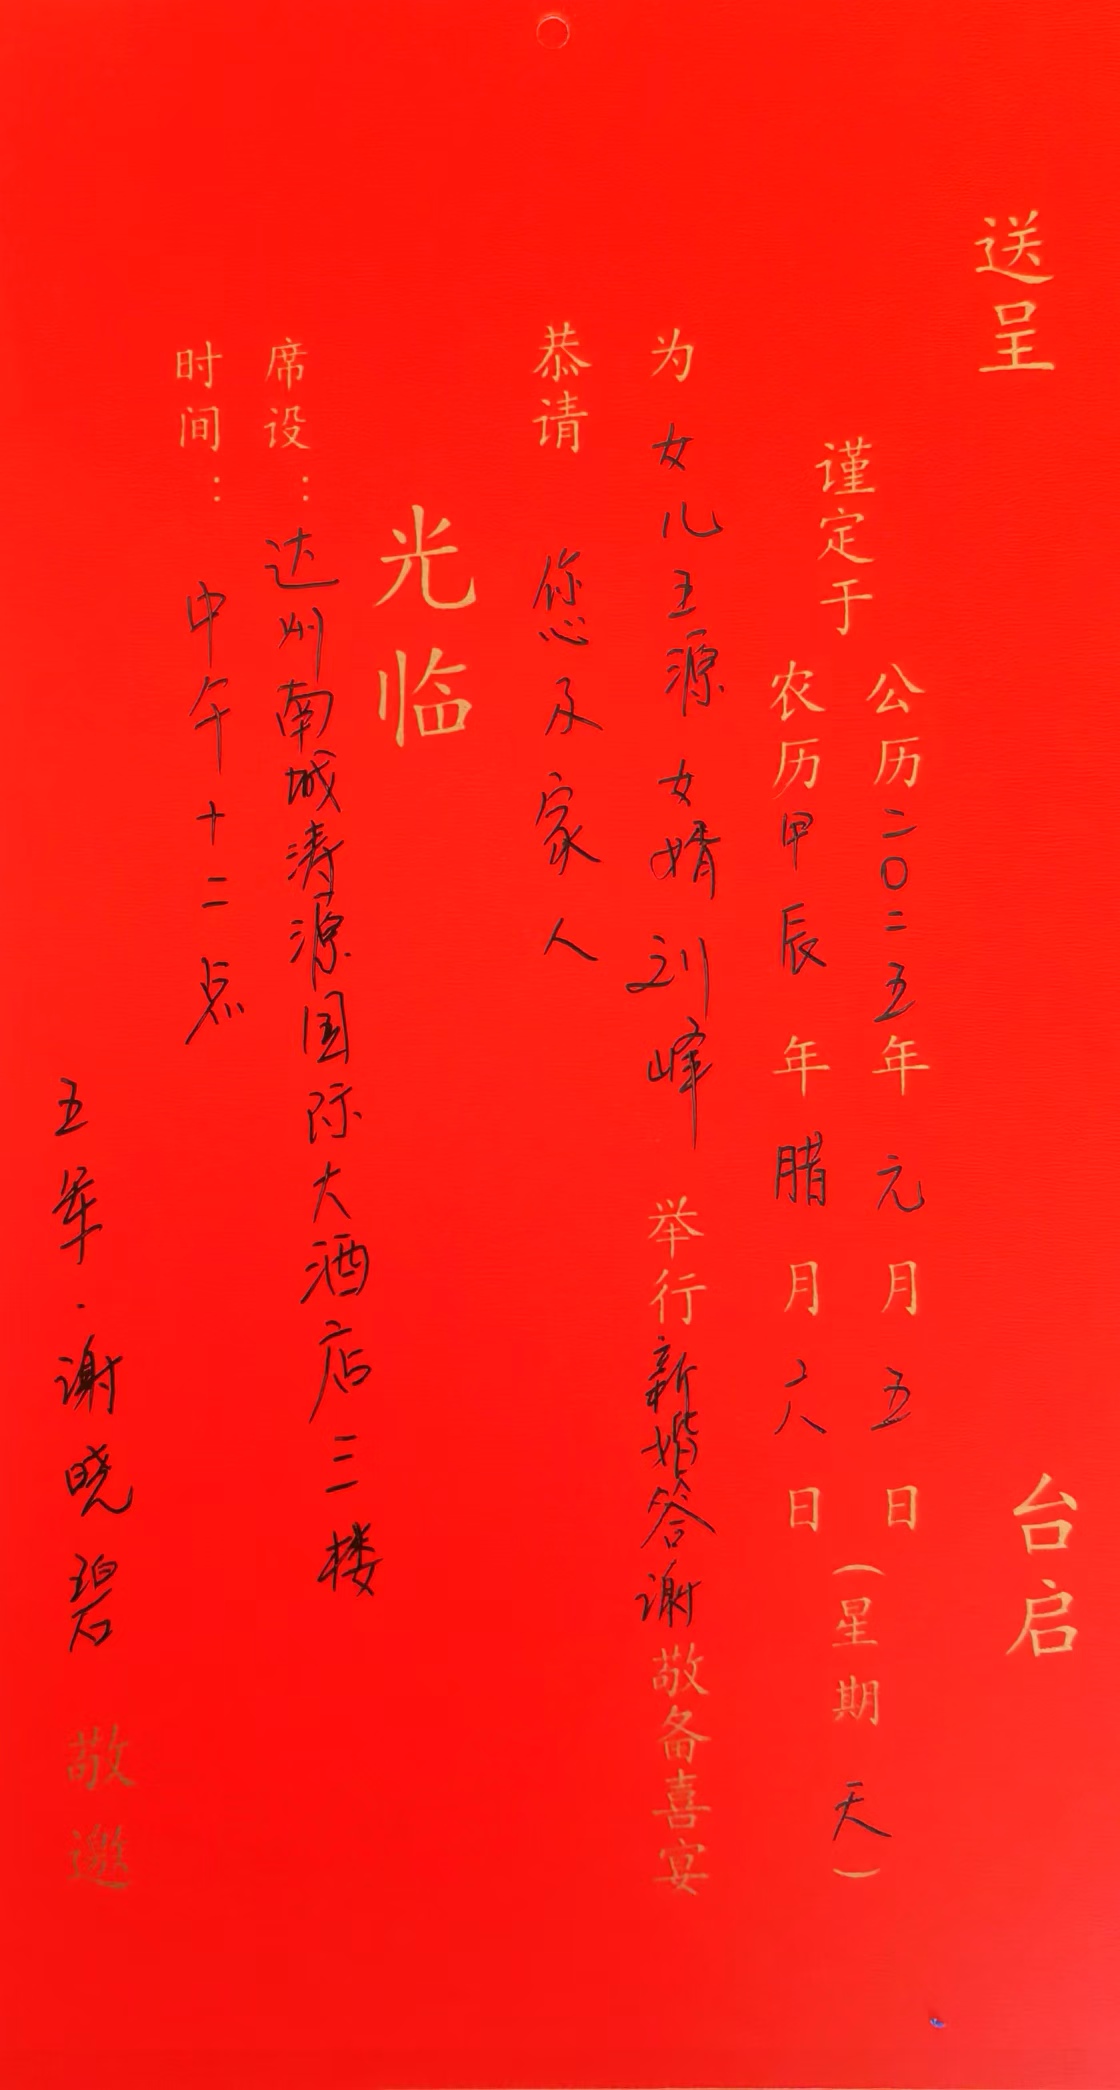 送呈 台启
谨定于
公历二〇二五年元月五日
农历甲辰年腊月六日
（星期天）
为女儿王源女婿刘峰举行新婚答谢敬备喜宴
恭请您及家人
光临
席设：达州南城涛源国际大酒店三楼
时间：中午十二点
王军·谢晓碧 敬邀